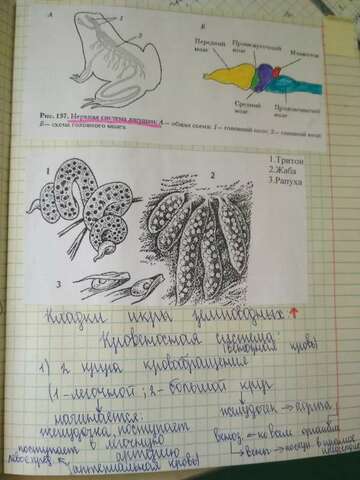 А
Б
1
2
Передний мозг
Промежуточный мозг
Мозжечок
Средний мозг
Продолговатый мозг
Рис. 137. Нервная система лягушки: А — общая схема: 1 — головной мозг; 2 — спинной мозг
Б — схема головного мозга
1
2
3
1.Тритон
2.Жаба
3.Рапуха
Кладки икры земноводных ↑
Кровеносная система:
(венозная кровь)
1) 2 круга кровобращения
(1 - легочной ; 2 - большой круг
начинается:
желудочка поступает
в легочную
артерию
поступает в
левое пред.
(артериальная кровь)
желудочек → аорта
ко всем органам
→ вены →